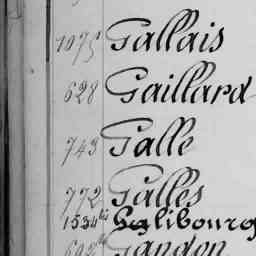 1075 Gallais
628 Gaillard
743 Galle
772 Galles
1534 bis Galibourg
692 bis Gandon